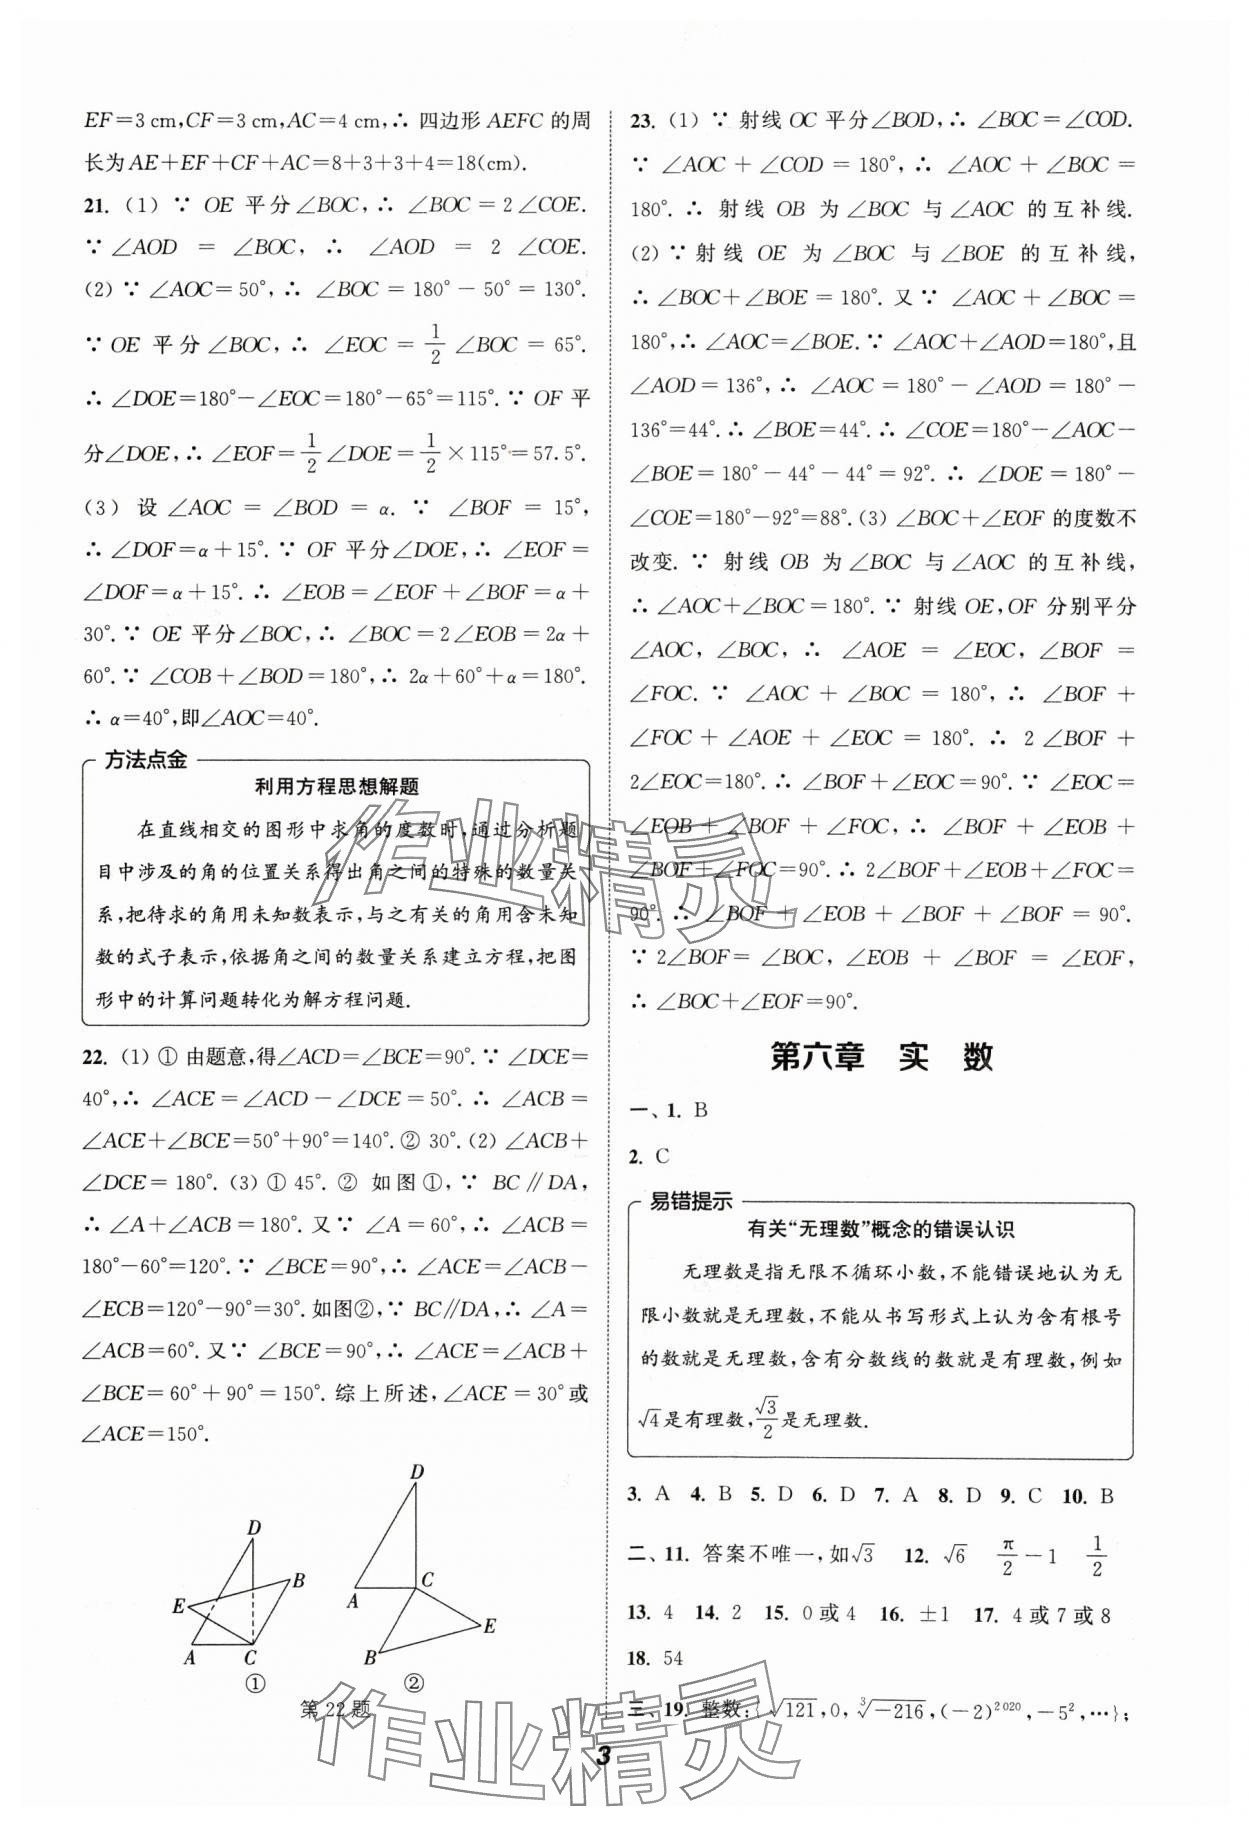 EF=3 cm,CF=3 cm,AC=4 cm,∴ 四边形 AEFC 的周
长为 AE+EF+CF+AC=8+3+3+4=18(cm).
21. (1) ∵ OE 平分∠BOC,∴ ∠BOC=2∠COE.
∵ ∠AOD = ∠BOC, ∴ ∠AOD = 2 ∠COE.
(2) ∵ ∠AOC=50°,∴ ∠BOC=180°-50°=130°.
∵ OE 平分∠BOC,∴ ∠EOC=1/2∠BOC=65°.
∴ ∠DOE=180°-∠EOC=180°-65°=115°.∵ OF 平
分∠DOE,∴ ∠EOF=1/2∠DOE=1/2×115°=57.5°.
(3) 设 ∠AOC = ∠BOD = α. ∵ ∠BOF = 15°,
∴ ∠DOF=α+15°.∵ OF 平分∠DOE,∴ ∠EOF=
∠DOF=α+15°.∴ ∠EOB=∠EOF+∠BOF=α+
30°.∵ OE 平分∠BOC,∴ ∠BOC=2∠EOB=2α+
60°.∵ ∠COB+∠BOD=180°,∴ 2α+60°+α=180°.
∴ α=40°,即∠AOC=40°.
方法点金
利用方程思想解题
在直线相交的图形中求角的度数时,通过分析题
目中涉及的角的位置关系得出角之间的特殊的数量关
系,把待求的角用未知数表示,与之有关的角用含未知
数的式子表示,依据角之间的数量关系建立方程,把图
形中的计算问题转化为解方程问题.
22. (1) ① 由题意,得∠ACD=∠BCE=90°.∵ ∠DCE=
40°,∴ ∠ACE=∠ACD-∠DCE=50°.∴ ∠ACB=
∠ACE+∠BCE=50°+90°=140°.② 30°.(2) ∠ACB+
∠DCE=180°.(3) ① 45°. ② 如图①,∵ BC∥DA,
∴ ∠A+∠ACB=180°.又∵ ∠A=60°,∴ ∠ACB=
180°-60°=120°.∵ ∠BCE=90°,∴ ∠ACE=∠ACB-
∠ECB=120°-90°=30°.如图②,∵ BC∥DA,∴ ∠A=
∠ACB=60°.又∵ ∠BCE=90°,∴ ∠ACE=∠ACB+
∠BCE=60°+90°=150°.综上所述,∠ACE=30°或
∠ACE=150°.
D
B
E
A
C
①
D
A
C
E
B
②
第 22 题
23. (1) ∵ 射线 OC 平分∠BOD,∴ ∠BOC=∠COD.
∵ ∠AOC + ∠COD = 180°, ∴ ∠AOC + ∠BOC =
180°. ∴ 射线 OB 为 ∠BOC 与 ∠AOC 的互补线.
(2) ∵ 射线 OE 为 ∠BOC 与 ∠BOE 的互补线,
∴ ∠BOC+∠BOE=180°. 又∵ ∠AOC+∠BOC=
180°,∴ ∠AOC=∠BOE.∵ ∠AOC+∠AOD=180°,且
∠AOD=136°,∴ ∠AOC=180°-∠AOD=180°-
136°=44°.∴ ∠BOE=44°.∴ ∠COE=180°-∠AOC-
∠BOE=180°-44°-44°=92°.∴ ∠DOE=180°-
∠COE=180°-92°=88°.(3) ∠BOC+∠EOF 的度数不
改变. ∵ 射线 OB 为 ∠BOC 与 ∠AOC 的互补线,
∴ ∠AOC+∠BOC=180°.∵ 射线 OE,OF 分别平分
∠AOC, ∠BOC, ∴ ∠AOE = ∠EOC, ∠BOF =
∠FOC. ∵ ∠AOC + ∠BOC = 180°, ∴ ∠BOF +
∠FOC + ∠AOE + ∠EOC = 180°. ∴ 2 ∠BOF +
2∠EOC=180°.∴ ∠BOF+∠EOC=90°.∵ ∠EOC=
∠EOB + ∠BOF + ∠FOC, ∴ ∠BOF + ∠EOB +
∠BOF+∠FOC=90°.∴ 2∠BOF+∠EOB+∠FOC=
90°.∴ ∠BOF + ∠EOB + ∠BOF + ∠BOF = 90°.
∵ 2∠BOF= ∠BOC, ∠EOB + ∠BOF = ∠EOF,
∴ ∠BOC+∠EOF=90°.
第六章 实 数
一、1. B
2. C
易错提示
有关“无理数”概念的错误认识
无理数是指无限不循环小数,不能错误地认为无
限小数就是无理数,不能从书写形式上认为含有根号
的数就是无理数,含有分数线的数就是有理数,例如
√4是有理数,√3/2是无理数.
3. A 4. B 5. D 6. D 7. A 8. D 9. C 10. B
二、11. 答案不唯一,如√3 12. √6 π/2-1 1/2
13. 4 14. 2 15. 0 或 4 16. ±1 17. 4 或 7 或 8
18. 54
三、19. 整数:{√121,0,∛-216,(-2)²⁰²⁰,-5²,…};
3
作业精灵
作业精灵